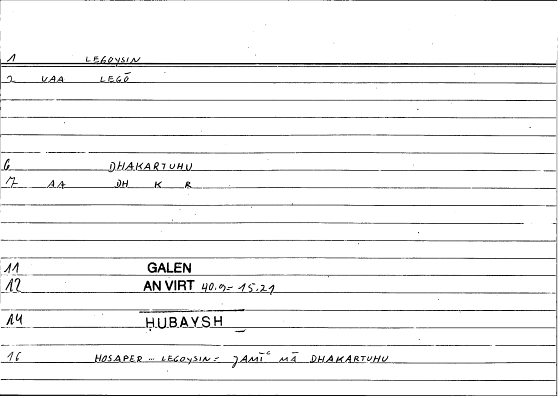 1 LEGOYSIN
2 VAA LEGŌ
6 DHAKARTUHU
7 AA DH K R
11 GALEN
12 AN VIRT 40.9= 15.21
14 ḤUBAYSH
16 HOSAPER ... LEGOYSIN = JAMĪᶜ MĀ DHAKARTUHU